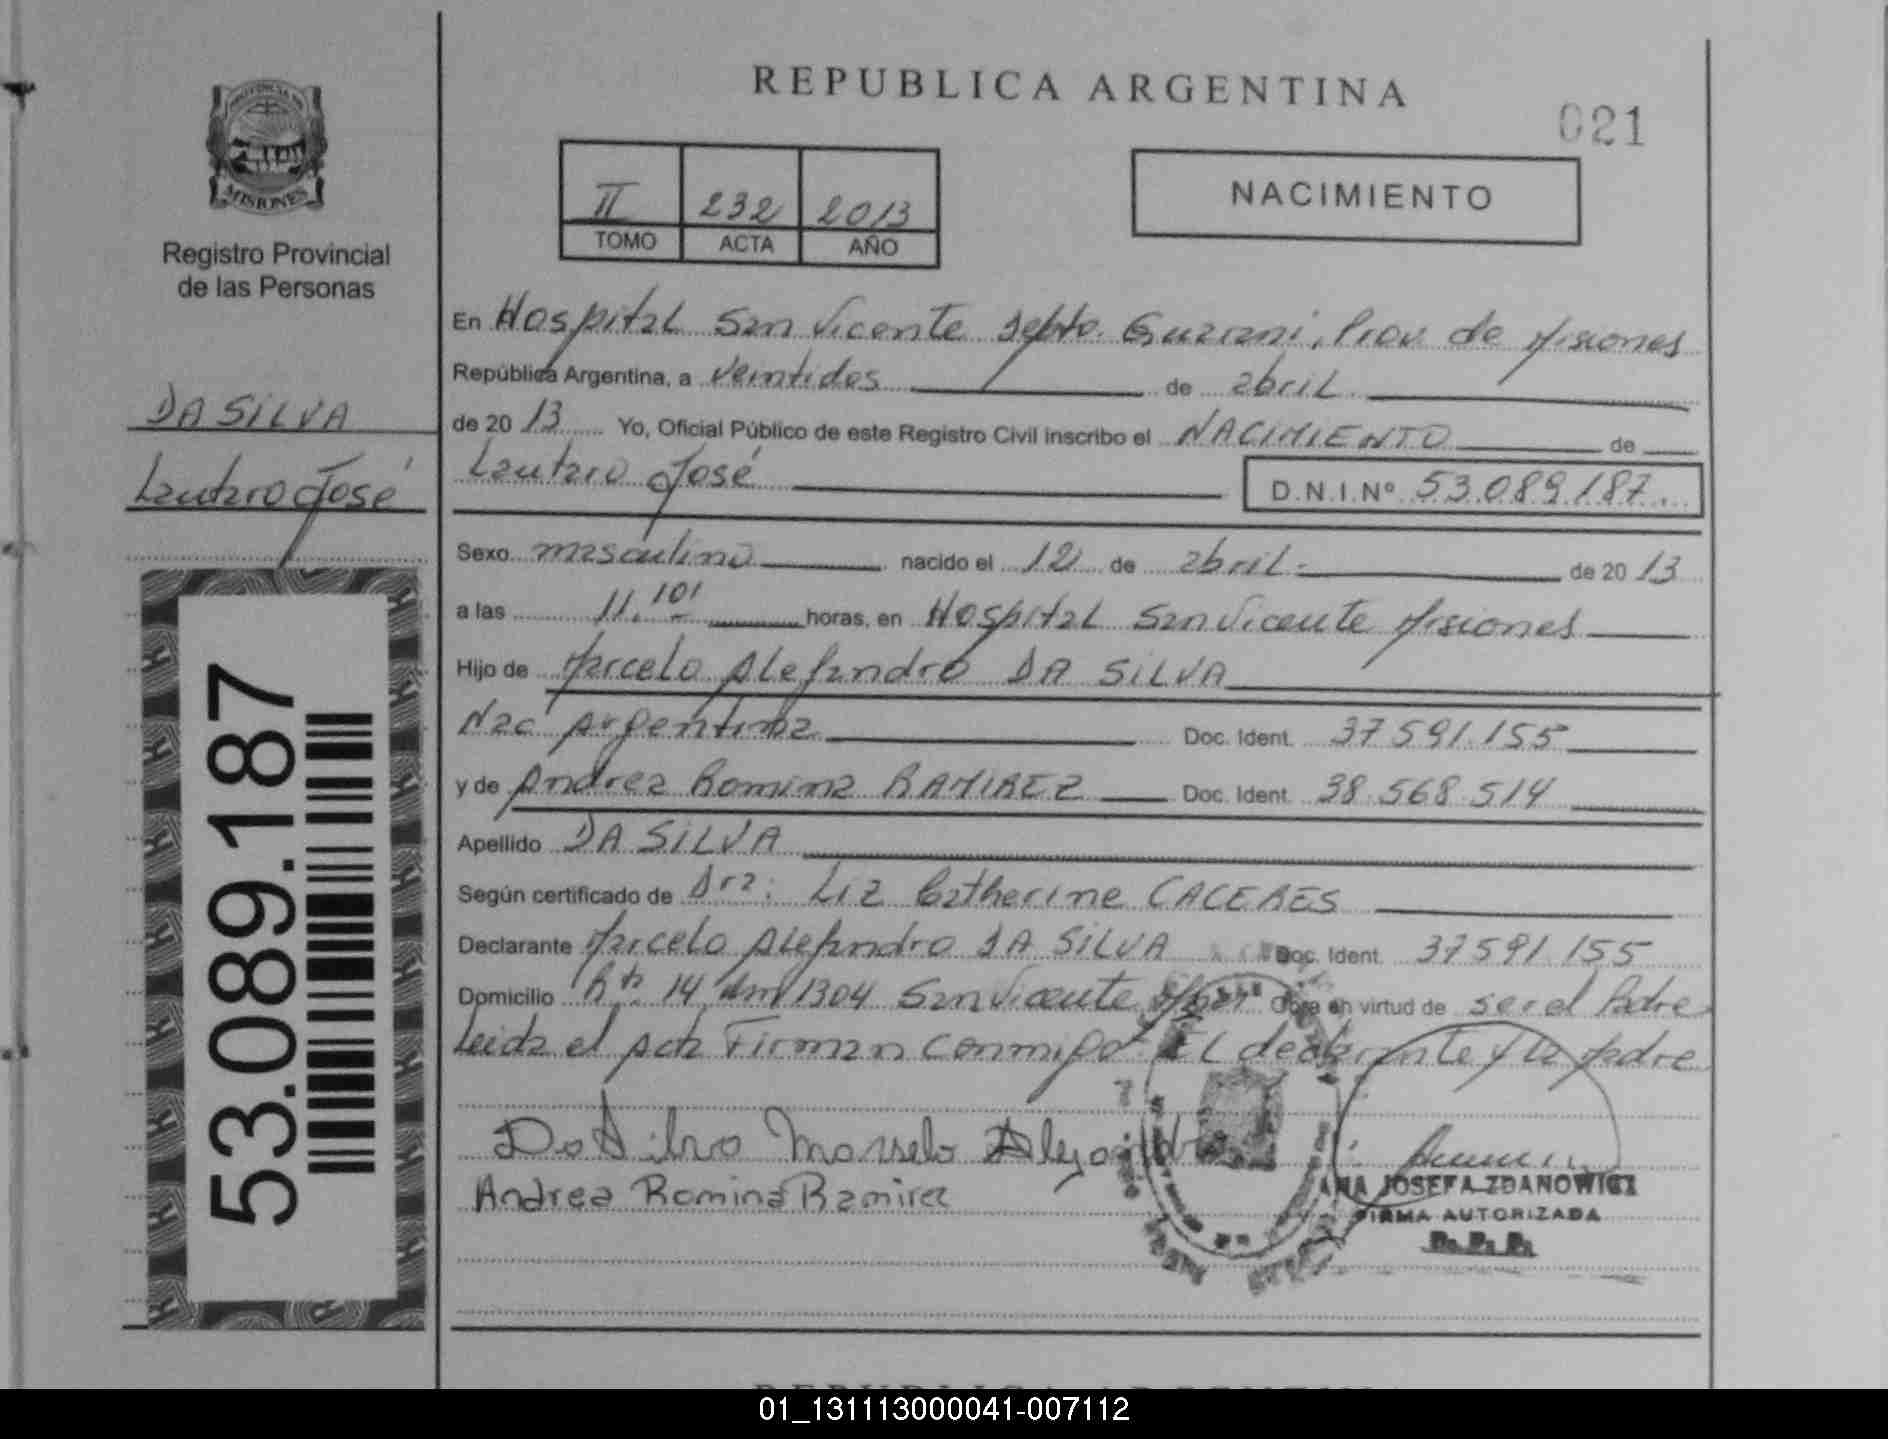 REPUBLICA ARGENTINA
021
PROVINCIA DE
MISIONES
Registro Provincial
de las Personas
II 232 2013
TOMO ACTA AÑO
NACIMIENTO
DA SILVA
Lautaro José
53.089.187
En Hospital San Vicente Depto. Guarani, Prov. de Misiones
República Argentina, a veintidos de abril
de 20 13 Yo, Oficial Público de este Registro Civil inscribo el NACIMIENTO de
Lautaro José D.N.I.Nº 53.089.187.
Sexo masculino nacido el 12 de abril. de 20 13
a las 11,10' horas, en Hospital San Vicente Misiones
Hijo de Marcelo Alejandro DA SILVA
Nac Argentina Doc. Ident. 37 591.155
y de Andrea Romina RAMIREZ Doc. Ident. 38.568.514
Apellido DA SILVA
Según certificado de Dra: Liz Catherine CACERES
Declarante Marcelo Alejandro DA SILVA Doc. Ident. 37591.155
Domicilio Rta. 14 Km 1304 San Vicente Obra en virtud de ser el Padre
Leida el Acta Firman conmigo El declarante y la Madre
Da Silva Marselo Alejandro
Andrea Romina Ramirez
ANA JOSEFA ZDANOWICZ
FIRMA AUTORIZADA
R.P.P.
01_131113000041-007112